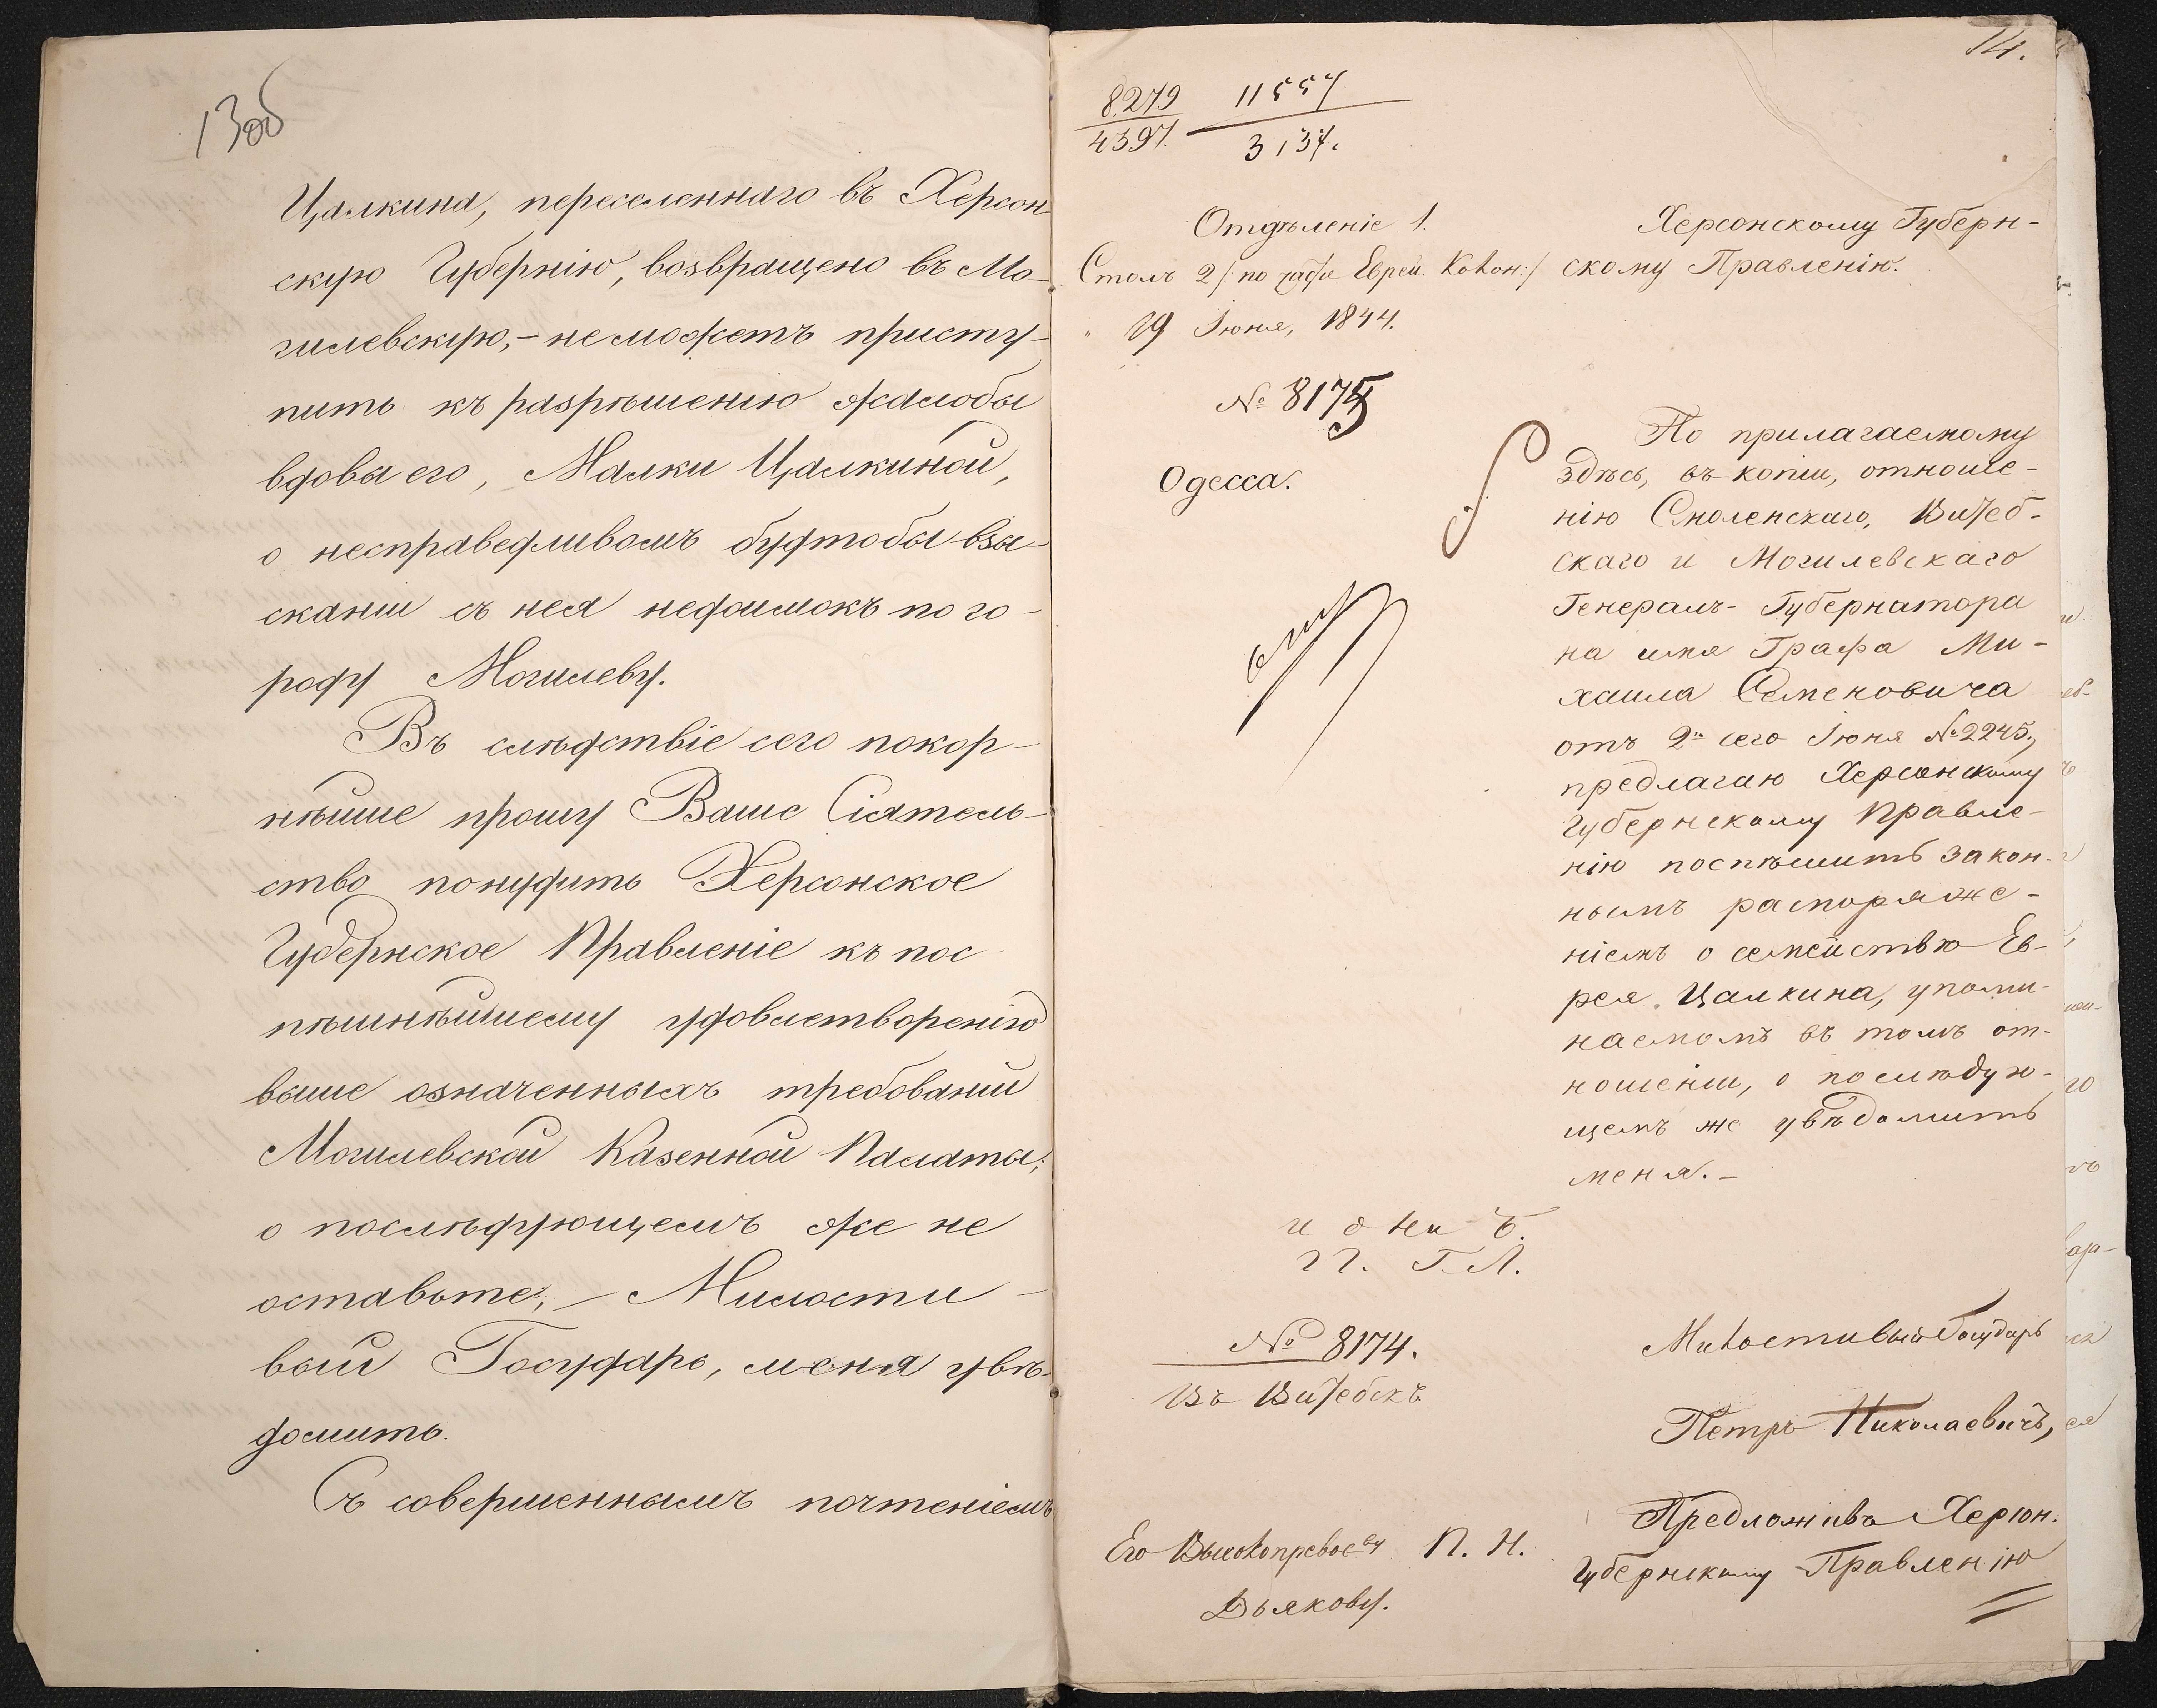 13об
Цалкина, переселеннаго въ Херсон-
скую Губернію, возвращено въ Мо-
гилевскую,- не можетъ присту-
пить къ разрѣшенію жалобы
вдовы его, Малки Цалкиной,
о несправедливомъ будтобы взы-
сканіи съ нея недоимокъ по го-
роду Могилеву.
Въ слѣдствіе сего покор-
нѣйше прошу Ваше Сіятель-
ство понудить Херсонское
Губернское Правленіе къ пос
пѣшнѣйшему удовлетворенію
выше означенныхъ требованій
Могилевской Казенной Палаты;
о послѣдующемъ же не
оставьте, - Милости-
вый Государь, меня увѣ-
домить.
Съ совершеннымъ почтеніемъ
14.
8279 11557
4397. 3137.
Отдѣленіе 1.
Столъ 2 /: по Еврей. Колон:/
19 Іюня, 1844.
№ 8175
Одесса.
Херсонскому Губерн-
скому Правленію.
По прилагаемому
здѣсь, въ копіи, отноше-
нію Смоленскаго, Витеб-
скаго и Могилевскаго
Генералъ-Губернатора
на имя Графа Ми-
хаила Семеновича
отъ 2 сего Іюня № 2245,
предлагаю Херсонскому
Губернскому Правле-
нію поспѣшить закон-
нымъ распоряже-
ніемъ о семействѣ Ев-
рея Цалкина, упоми-
наемомъ въ томъ от-
ношеніи, о послѣдую-
щемъ же увѣдомить
меня.-
П. Г. Л.
№ 8174.
Въ Витебскъ
Его Высокопревос ву П. Н.
Дьякову.
Милостивый Государь
Петръ Николаевичъ,
Предложивъ Херсон.
Губернскому Правленію